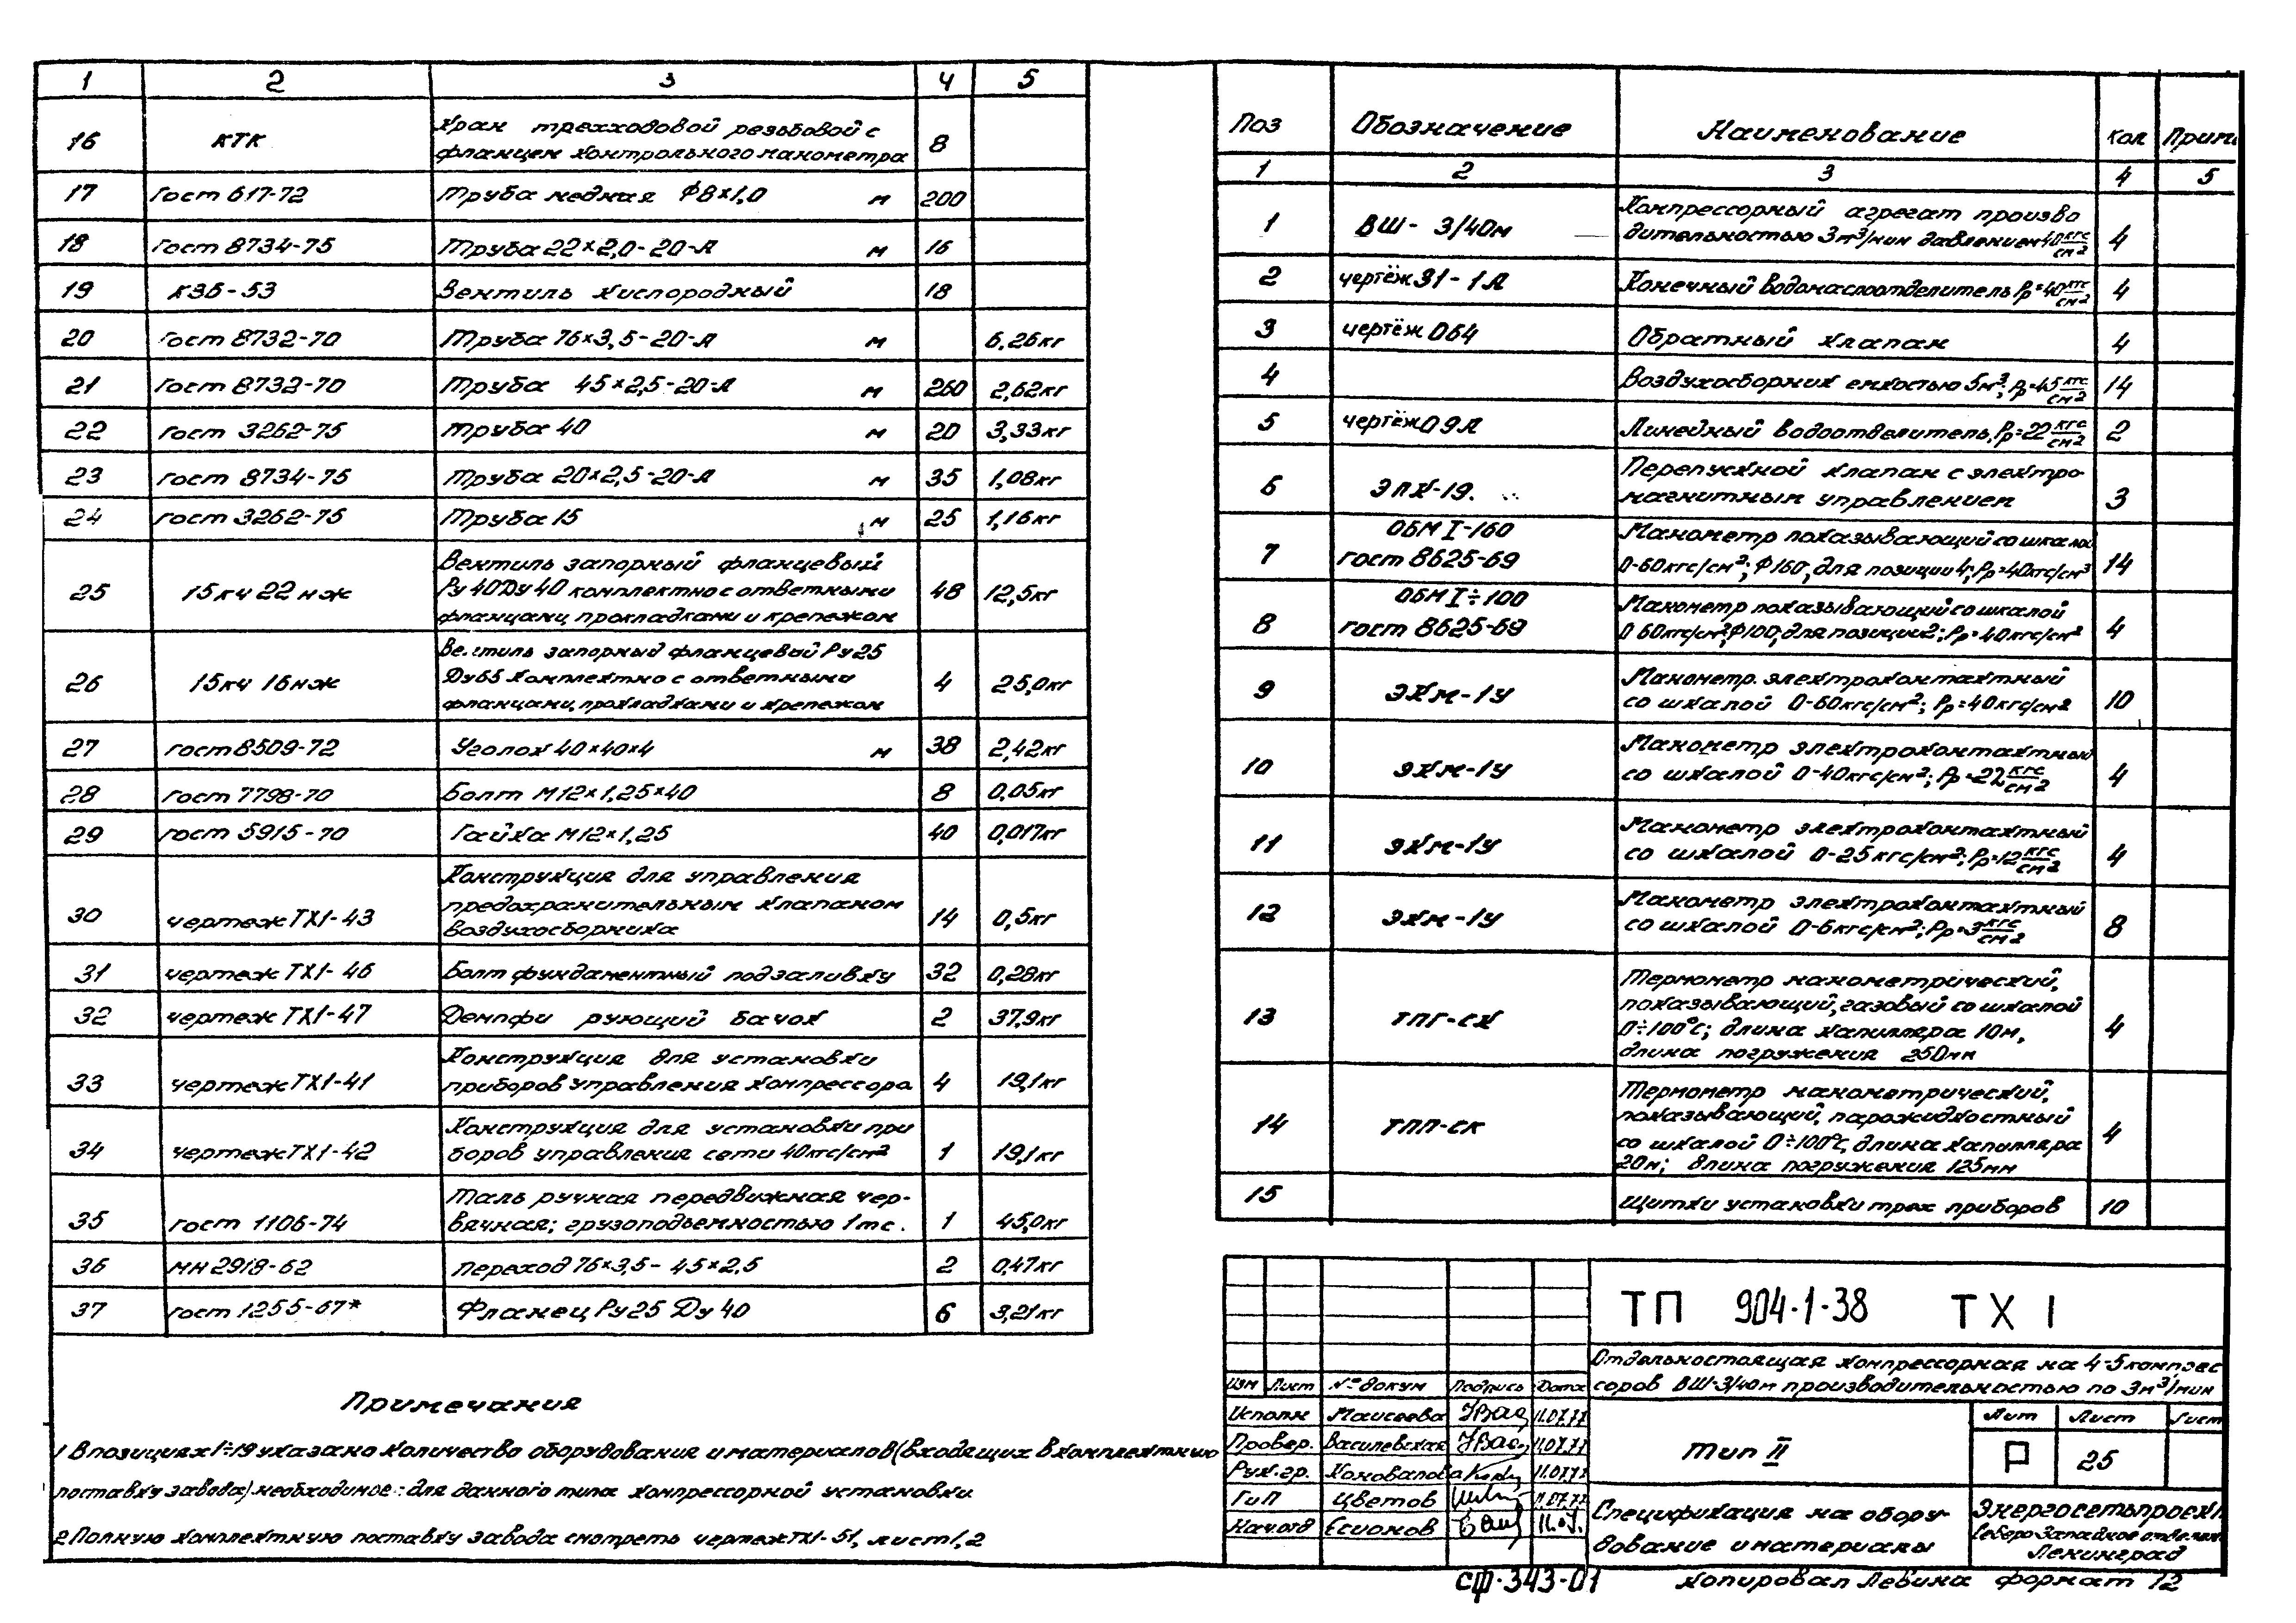 1 2 3 4 5
16 КТК Кран трехходовой резьбовой с
фланцем контрольного манометра 8
17 Гост 617-72 Труба медная Ф8×1,0 м 200
18 Гост 8734-75 Труба 22×2,0-20-А м 16
19 КЗБ-53 Вентиль кислородный 18
20 Гост 8732-70 Труба 76×3,5-20-А м 6,26кг
21 Гост 8732-70 Труба 45×2,5-20-А м 260 2,62кг
22 Гост 3262-75 Труба 40 м 20 3,33кг
23 Гост 8734-75 Труба 20×2,5-20-А м 35 1,08кг
24 Гост 3262-75 Труба 15 м 25 1,16кг
25 15кч 22 нж Вентиль запорный фланцевый
Ру 40 Ду 40 комплектно с ответными
фланцами, прокладками и крепежом 48 12,5кг
26 15кч 16нж Вентиль запорный фланцевый Ру25
Ду65 комплектно с ответными
фланцами, прокладками и крепежом 4 25,0кг
27 Гост 8509-72 Уголок 40×40×4 м 38 2,42кг
28 Гост 7798-70 Болт М12×1,25×40 8 0,05кг
29 Гост 5915-70 Гайка М12×1,25 40 0,017кг
30 чертеж ТХI-43 Конструкция для управления
предохранительным клапаном
воздухосборника 14 0,5кг
31 чертеж ТХI-46 Болт фундаментный под заливку 32 0,28кг
32 чертеж ТХI-47 Демпфи рующий бачок 2 37,9кг
33 чертеж ТХI-41 Конструкция для установки
приборов управления компрессора 4 19,1кг
34 чертеж ТХI-42 Конструкция для установки при
боров управления сети 40кгс/см² 1 19,1кг
35 Гост 1106-74 Таль ручная передвижная чер-
вячная; грузоподъемностью 1тс. 1 45,0кг
36 МН 2918-62 переход 76×3,5- 45×2,5 2 0,47кг
37 Гост 1255-67* Фланец Ру25 Ду 40 6 3,21кг
Примечания
1 В позициях 1÷19 указано количество оборудования и материалов (входящих в комплектную
поставку завода) необходимое: для данного типа компрессорной установки
2 Полную комплектную поставку завода смотреть чертеж ТХI-51, лист 1,2
Поз Обозначение Наименование Кол Прим.
1 2 3 4 5
1 ВШ- 3/40м Компрессорный агрегат произво
дительностью 3м³/мин давлением 40 кгс/см² 4
2 чертёж 31-1А Конечный водомаслоотделитель Рр=40 кгс/см² 4
3 чертёж 064 Обратный клапан 4
4 Воздухосборник емкостью 5м³; Рр=45 кгс/см² 14
5 чертёж 09А Линейный водоотделитель, Рр=22 кгс/см² 2
6 ЭПК-19. Перепускной клапан с электро-
магнитным управлением 3
7 ОБМ I-160
гост 8625-69 Манометр показывающий со шкалой
0-60кгс/см²; Ф160, для позиции 4; Рр=40кгс/см² 14
8 ОБМ I÷100
гост 8625-69 Манометр показывающий со шкалой
0 60кгс/см²; Ф100; для позиции 2; Рр=40кгс/см² 4
9 ЭКМ-1У Манометр. электроконтактный
со шкалой 0-60кгс/см²; Рр=40кгс/см² 10
10 ЭКМ-1У Манометр электроконтактный
со шкалой 0-40кгс/см²; Рр=22 кгс/см² 4
11 ЭКМ-1У Манометр электроконтактный
со шкалой 0-25кгс/см²; Рр=12 кгс/см² 4
12 ЭКМ-1У Манометр электроконтактный
со шкалой 0-6кгс/см²; Рр=3 кгс/см² 8
13 ТПГ-СК Термометр манометрический,
показывающий, газовый со шкалой
0÷100°С; длина капилляра 10м,
длина погружения 250мм 4
14 ТПП-СК Термометр манометрический,
показывающий, парожидкостный
со шкалой 0÷100°С, длина капилляра
20м; длина погружения 125мм 4
15 Щитки установки трех приборов 10
ТП 904-1-38 ТХ I
Отдельностоящая компрессорная на 4-5 компрес
соров ВШ-3/40м производительностью по 3м³/мин
Изм Лист № докум Подпись Дата
Исполн Маисеева 11.07.77
Провер. Василевская 11.07.77
Рук.гр. Коновалова 11.07.77
ГиП Цветов 11.07.77
Нач отд Есионов
Тип II
Лит Лист Лист
Р 25
Спецификация на обору-
дование и материалы
Энергосетьпроект
Северо-Западное отделение
Ленинград
СФ-343-01 Копировал Левина формат 12